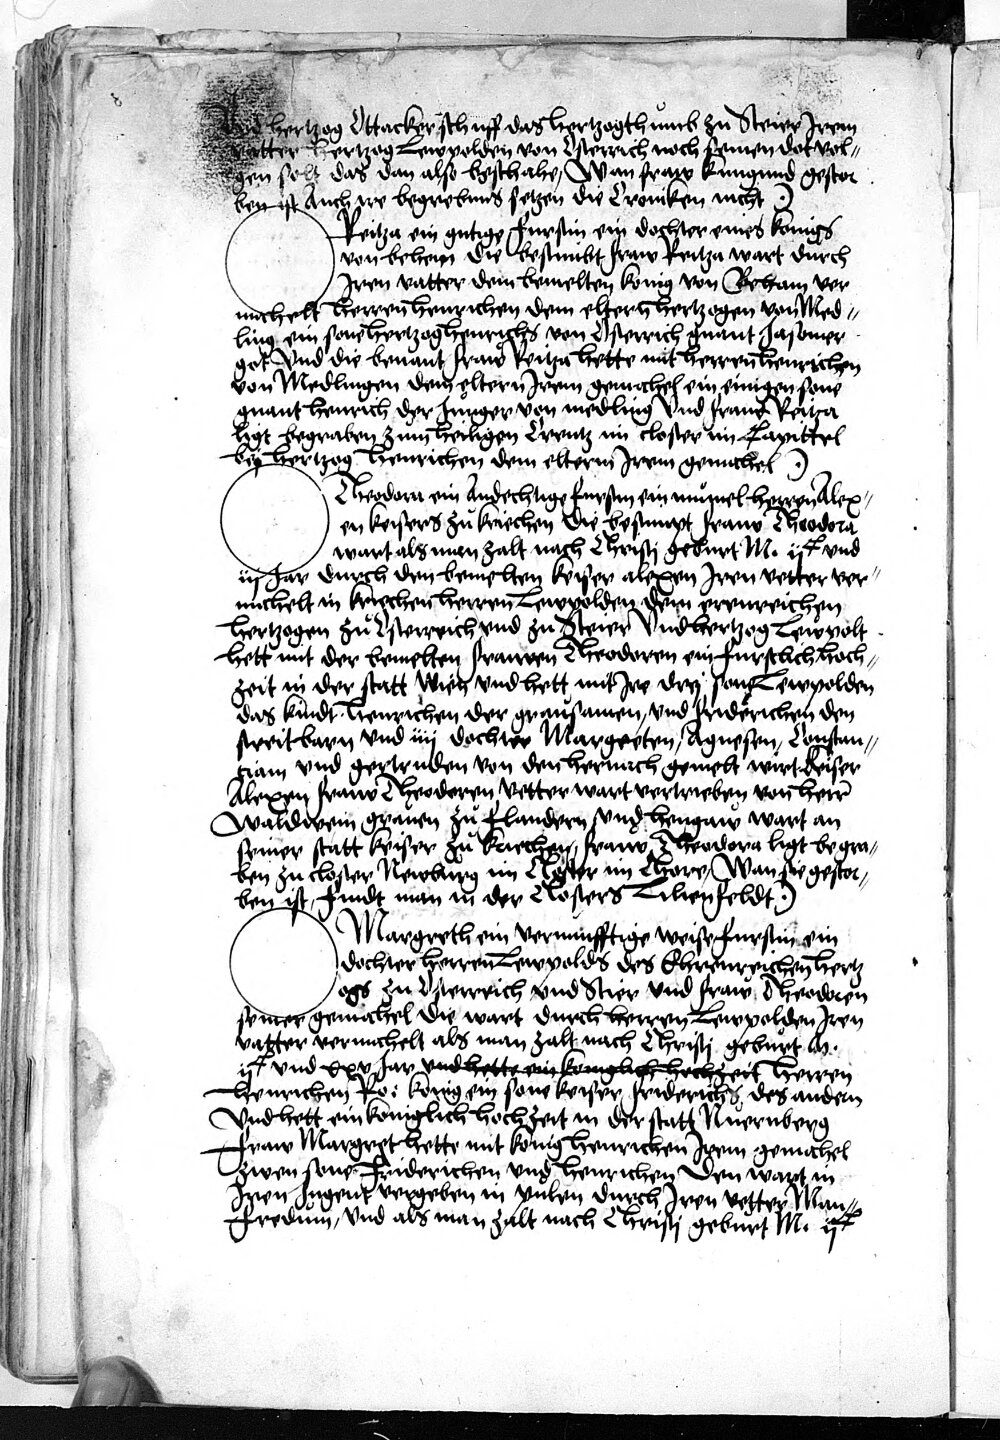 Vnd hertzog Ottacker schuff das hertzogthumb zu Steier Irem
vetter hertzog Lewpolden von Osterrich noch seinen dot vol-
gen solt das dan also beschahe, Wan fraw Kunigund gestor
ben ist Auch ire begrebnus setzen die Croniken nicht
Reitza ein gutige Furstin ein dochter eines konigs
von behem die bestimbt fraw Reitza wart durch
Iren vatter dem bemelten konig von Beham ver
machelt herren henrichen dem eltern hertzogen von Med-
ling ein sone hertzog henrichs von Osterrich gnant Jasomer
got Vnd die benant fraw Reitza hette mit herren henrichen
von Medlingen dem eltern Irem gemachel ein einigen sone
gnant henrich der Junger von medling Vnd fraw Reitza
ligt begraben zum heiligen Creutz im closter im Capittel
bej hertzog henrichen dem eltern Irem gemachel
Theodora ein Andechtige furstin ein mumel herren Alex-
en keisers zu kriechen die bestimpt fraw Theodora
wart als man zalt nach Christj geburt M. ijc vnd
iij Jar durch den bemelten keiser alexen Iren vetter ver-
machelt in kriechen herren Lewpolden dem erenreichen
hertzogen zu Osterreich vnd zu Steier Vnd hertzog Lewpolt
hett mit der bemelten frawen Theodoren ein furstlich hoch-
zeit in der statt Wien vnd hett mit Ire drej sone Lewpolden
das kindt henrichen der grausamen, vnd friderichen den
streitbarn vnd iiij dochter Margreten, Agnesen, Constan-
tiam vnd gertruden von den hernach gemelt wirt keiser
Alexen fraw Theoderen vetter wart vertrieben von herr
Waldwein grauen zu Flandern vnd hengaw wart an
seiner statt keiser zu kriechen, fraw Theodora ligt begra-
ben zu closter Newburg im Closter im Chore, Wan sie gestor-
ben ist, findt man in der Closters Lilienfeldt
Margreth ein vernunfftige weise furstin ein
dochter herren Lewpolds des Ehrenreichen hertz
ogs zu Osterreich vnd Stier vnd fraw Theodoren
seiner gemachel die wart durch herren Lewpolden Iren
vatter vermachelt als man zalt nach Christj geburt M.
ijc vnd xxv Jar vnd hette ein koniglich hochzeit herren
henrichen Ro: konig ein sone keiser friderichs des andern
Vnd hett ein koniglich hochzeit in der statt Nuernberg
Fraw Margret hette mit konig henrichen Irem gemachel
zwen sone Friderichen vnd henrichen den wart in
Iren Jugent vergeben in pulen durch Iren vetter Man-
fredum, vnd als man zalt nach Christj geburt M. ijc